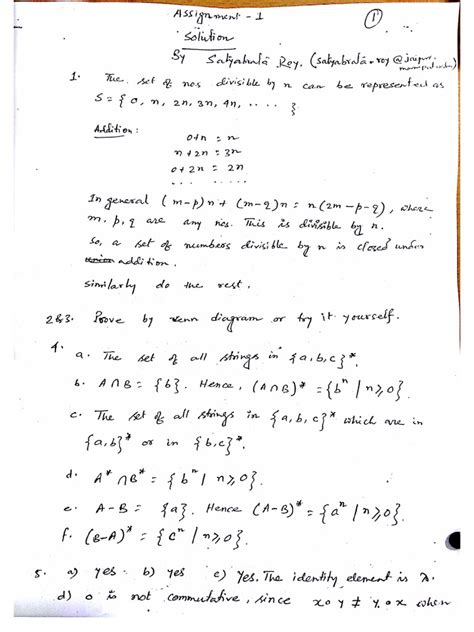 Assignment - 1
①
Solution
By Satyabrata Roy. (satyabrata.roy@jaipur.manipal.edu)
1. The set of nos divisible by n can be represented as
S = { 0, n, 2n, 3n, 4n, .... }
Addition:
0+n = n
n+2n = 3n
0+2n = 2n
... ... ......
In general (m-p)n + (m-q)n = n(2m-p-q), where
m, p, q are any nos. This is divisible by n.
So, a set of numbers divisible by n is closed under
addition.
Similarly do the rest.
2&3. Prove by venn diagram or try it yourself.
4.
a. The set of all strings in {a,b,c}*.
b. A∩B = {b}. Hence, (A∩B)* = {bⁿ | n≥0}.
c. The set of all strings in {a,b,c}* which are in
{a,b}* or in {b,c}*.
d. A* ∩ B* = {bⁿ | n≥0}.
e. A-B = {a}. Hence (A-B)* = {aⁿ | n≥0}.
f. (B-A)* = {cⁿ | n≥0}.
5. a) yes b) yes c) Yes. The identity element is λ.
d) o is not commutative, since x o y ≠ y o x when